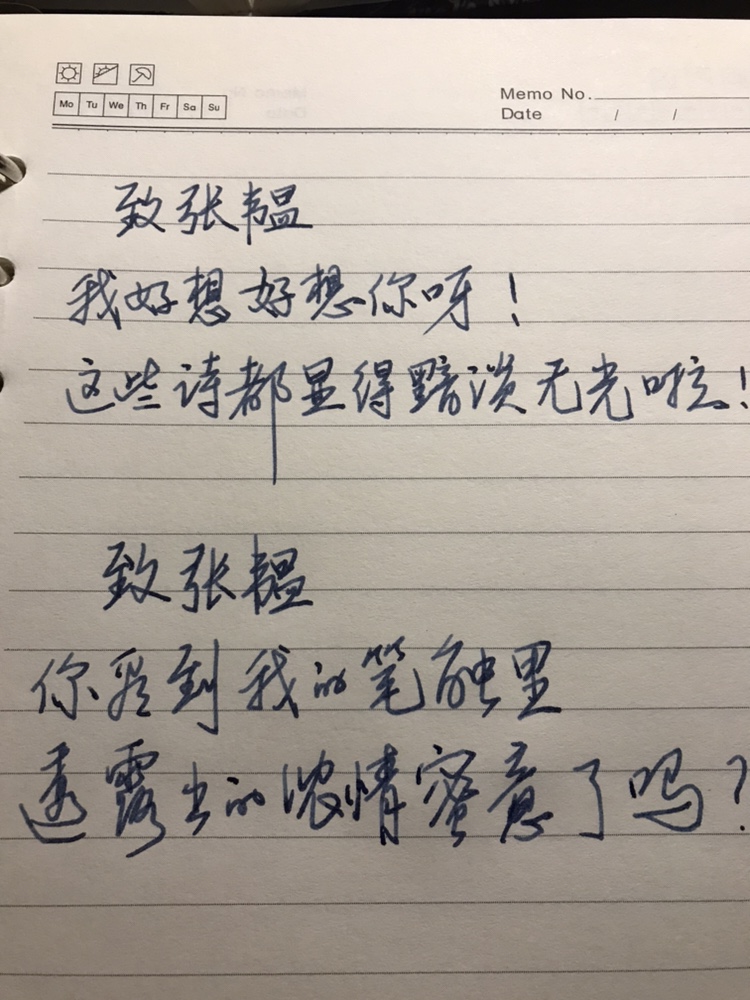 Mo Tu We Th Fr Sa Su
Memo No.
Date / /
致张韫
我好想好想你呀！
这些诗都显得黯淡无光啦！
致张韫
你受到我的笔触里
透露出的浓情蜜意了吗？